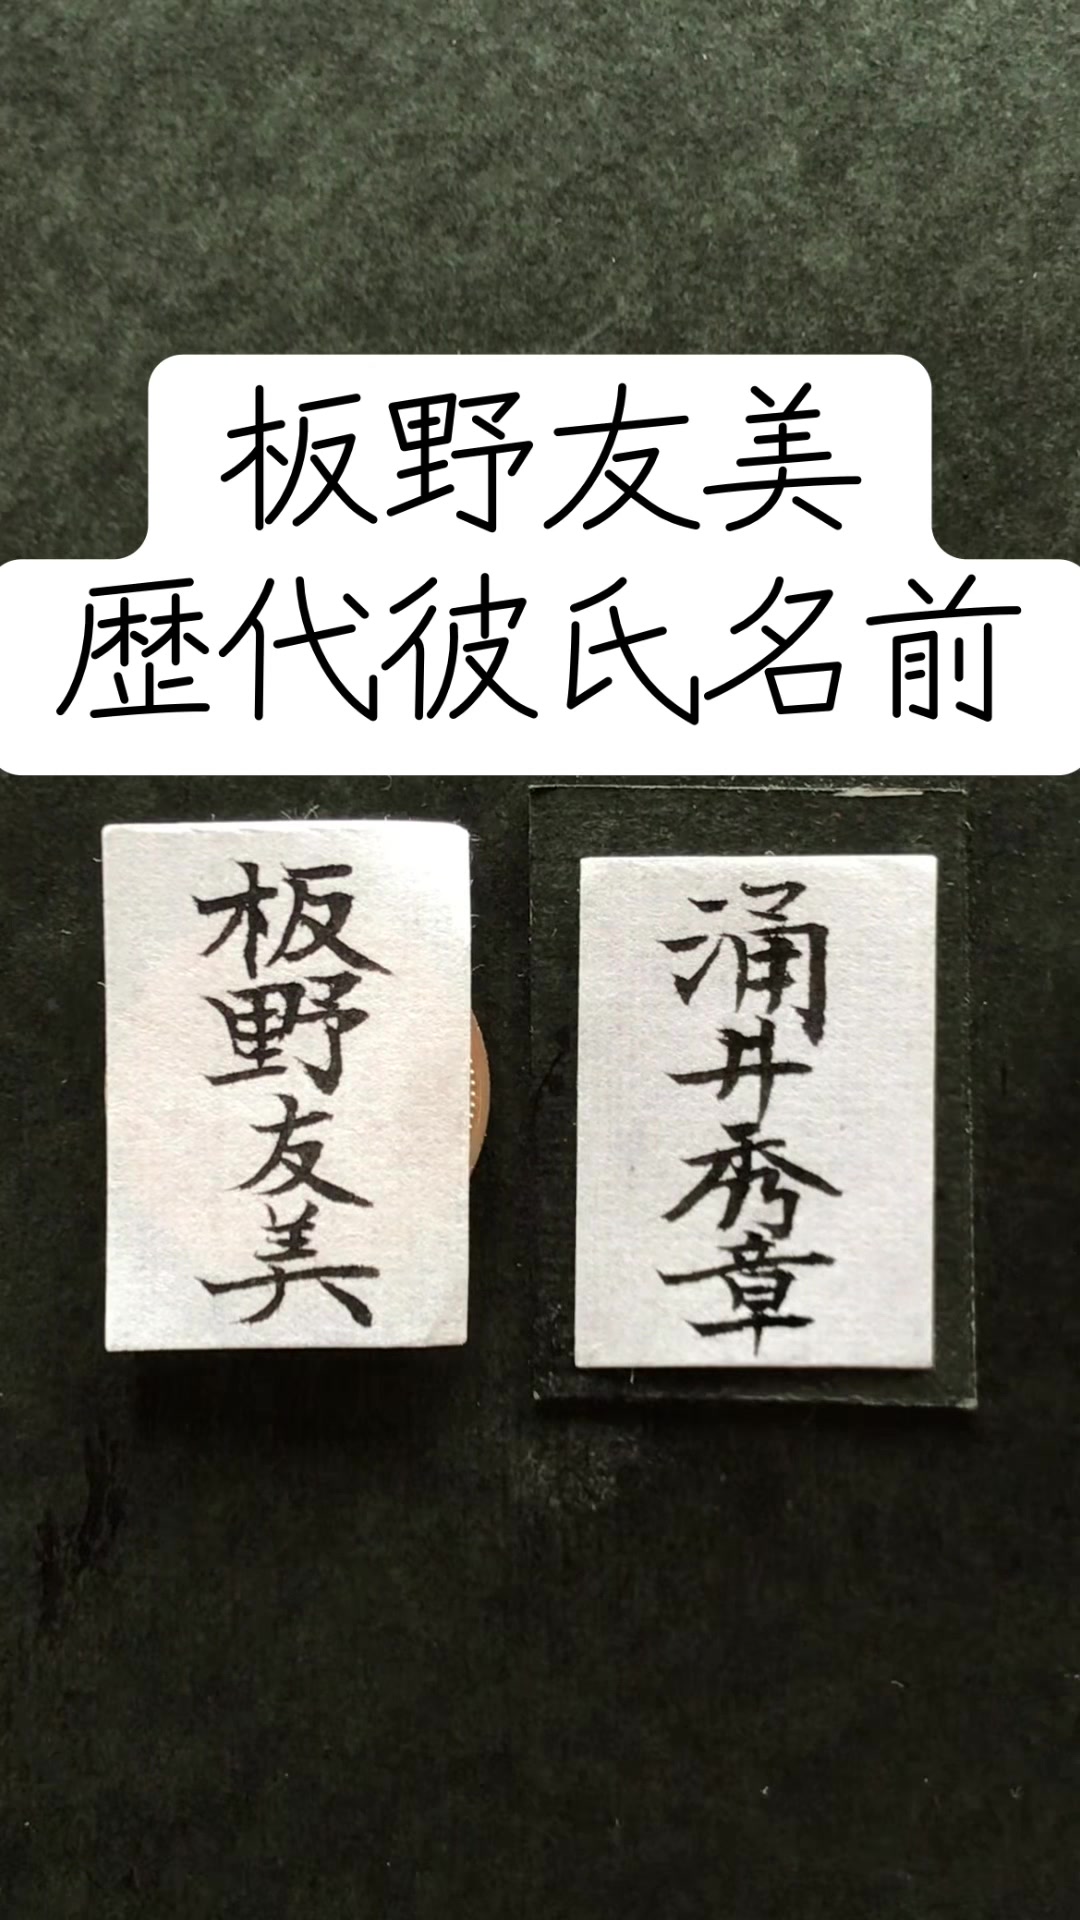 板野友美
歴代彼氏名前
板野友美
涌井秀章